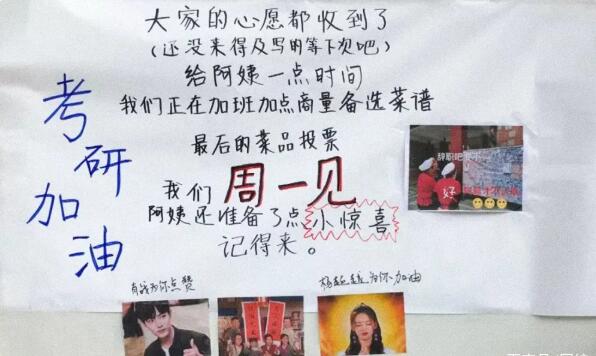 大家的心愿都收到了
(还没来得及写的等下次吧)
给阿姨一点时间
我们正在加班加点商量备选菜谱
最后的菜品投票
我们 周一见
阿姨还准备了点小惊喜
记得来。
考研加油
辞职吧
好
肖战为你点赞
杨超越为你加油